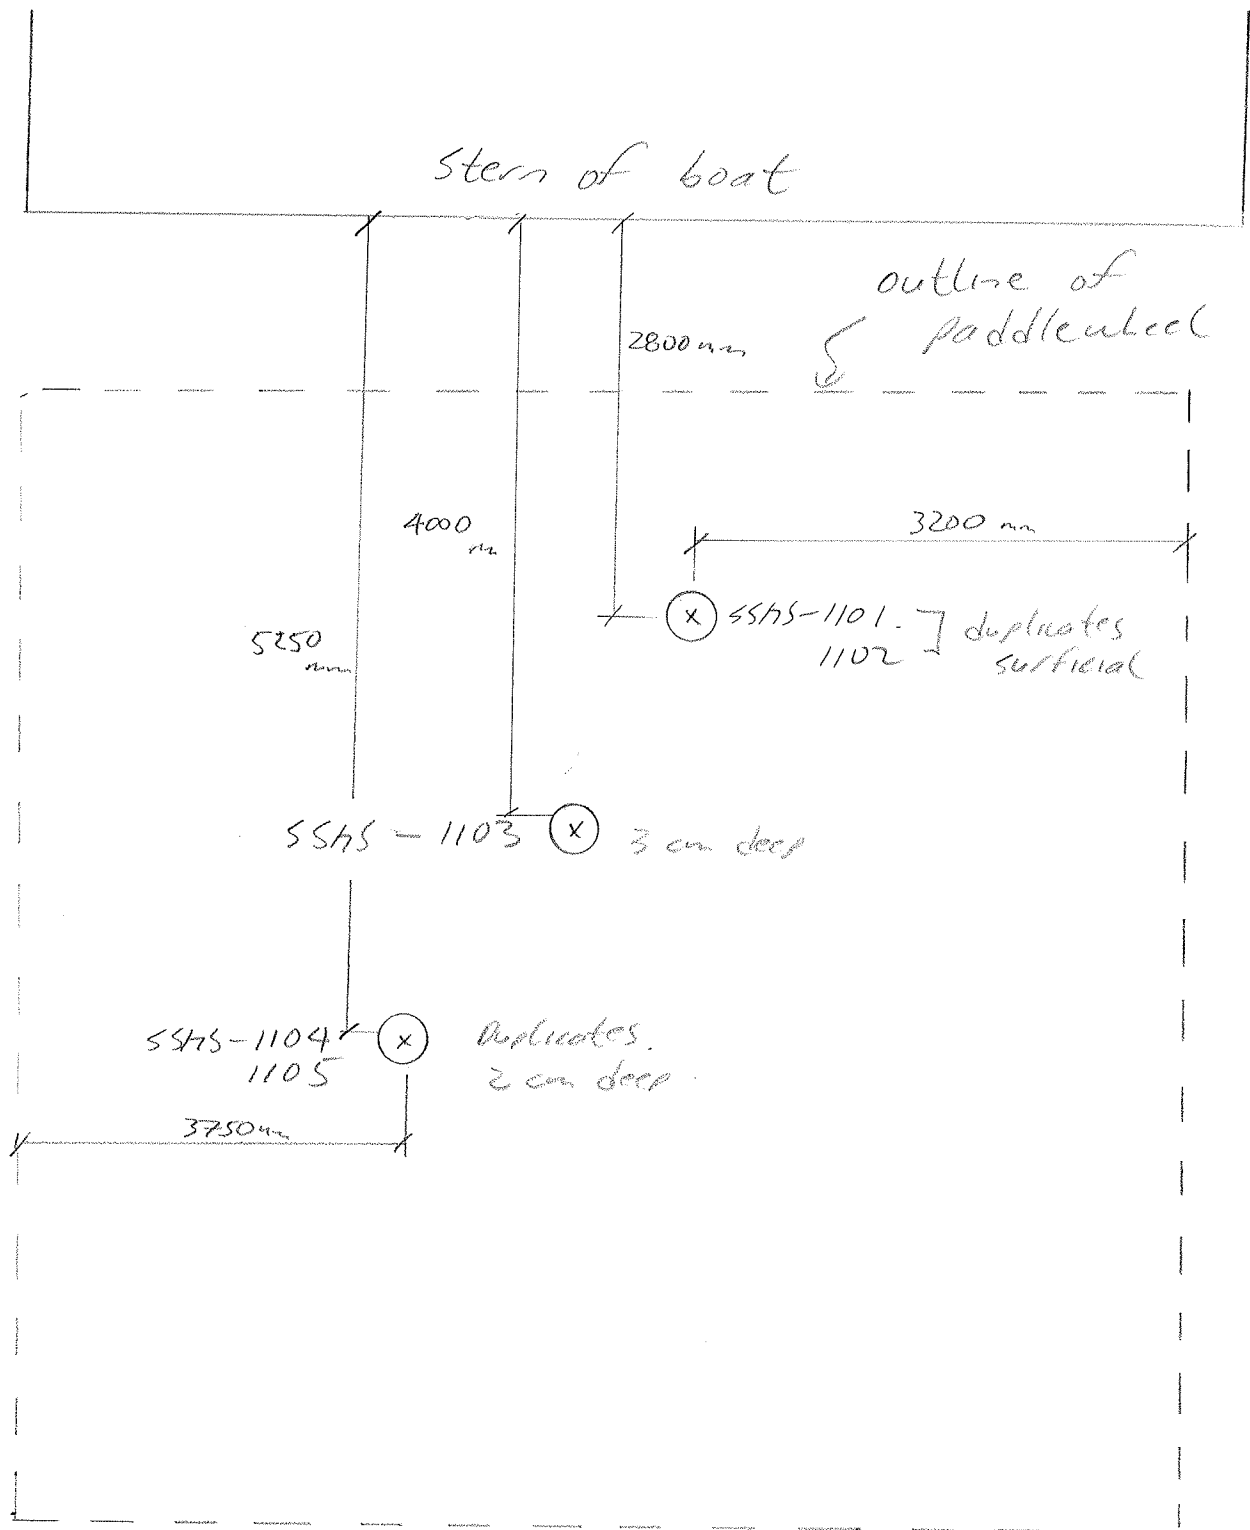 stern of boat
outline of
paddlewheel
2800 mm
4000
mm
3200 mm
5250
mm
SSHS-1101
1102
] duplicates
surficial
SSHS - 1103
3 cm deep
SSHS-1104
1105
Duplicates.
2 cm deep.
3750 mm
x
x
x